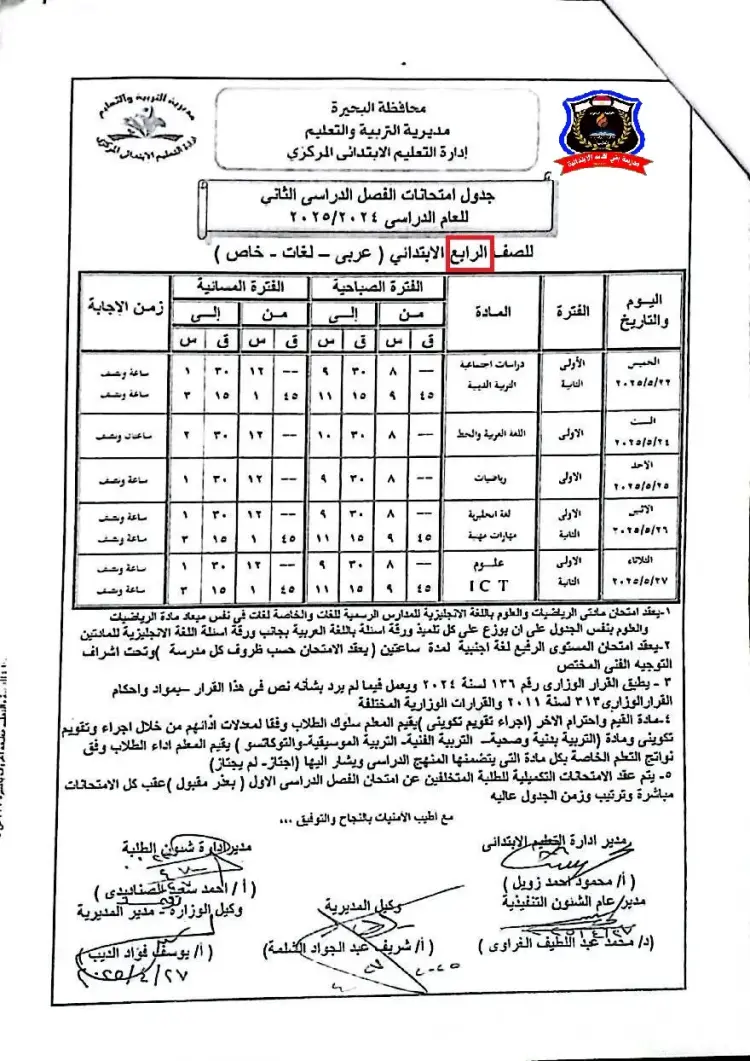 مديرية التربية والتعليم
إدارة التعليم الابتدائى المركزي
محافظة البحيرة
مديرية التربية والتعليم
إدارة التعليم الابتدائى المركزي
جدول امتحانات الفصل الدراسى الثاني
للعام الدراسى ٢٠٢٥/٢٠٢٤
للصف الرابع الابتدائي ( عربى – لغات - خاص )
اليوم والتاريخ | الفترة | المادة | الفترة الصباحية | الفترة المسائية | زمن الإجابة
من | إلى | من | إلى
ق | س | ق | س | ق | س | ق | س
الخميس ٢٠٢٥/٥/٢٢ | الأولى | دراسات اجتماعية | -- | ٨ | ٣٠ | ٩ | -- | ١٢ | ٣٠ | ١ | ساعة ونصف
الثانية | التربية الدينية | ٤٥ | ٩ | ١٥ | ١١ | ٤٥ | ١ | ١٥ | ٣ | ساعة ونصف
السبت ٢٠٢٥/٥/٢٤ | الاولى | اللغة العربية والخط | -- | ٨ | ٣٠ | ١٠ | -- | ١٢ | ٣٠ | ٢ | ساعتان ونصف
الاحد ٢٠٢٥/٥/٢٥ | الاولى | رياضيات | -- | ٨ | ٣٠ | ٩ | -- | ١٢ | ٣٠ | ١ | ساعة ونصف
الاثنين ٢٠٢٥/٥/٢٦ | الاولى | لغة انجليزية | -- | ٨ | ٣٠ | ٩ | -- | ١٢ | ٣٠ | ١ | ساعة ونصف
الثانية | مهارات مهنية | ٤٥ | ٩ | ١٥ | ١١ | ٤٥ | ١ | ١٥ | ٣ | ساعة ونصف
الثلاثاء ٢٠٢٥/٥/٢٧ | الاولى | علوم | -- | ٨ | ٣٠ | ٩ | -- | ١٢ | ٣٠ | ١ | ساعة ونصف
الثانية | ICT | ٤٥ | ٩ | ١٥ | ١١ | ٤٥ | ١ | ١٥ | ٣ | ساعة ونصف
١-يعقد امتحان مادتى الرياضيات والعلوم باللغة الانجليزية للمدارس الرسمية للغات والخاصة لغات فى نفس ميعاد مادة الرياضيات
والعلوم بنفس الجدول على ان يوزع على كل تلميذ ورقة اسئلة باللغة العربية بجانب ورقة اسئلة اللغة الانجليزية للمادتين
٢-يعقد امتحان المستوى الرفيع لغة اجنبية لمدة ساعتين (يعقد الامتحان حسب ظروف كل مدرسة )وتحت اشراف
التوجيه الفنى المختص
٣ - يطبق القرار الوزارى رقم ١٣٦ لسنة ٢٠٢٤ ويعمل فيما لم يرد بشأنه نص فى هذا القرار –بمواد واحكام
القرارالوزارى٣١٣ لسنة ٢٠١١ والقرارات الوزارية المختلفة
٤-مادة القيم واحترام الاخر (اجراء تقويم تكوينى )يقيم المعلم سلوك الطلاب وفقا لمعدلات ادائهم من خلال اجراء وتقويم
تكوينى ومادة (التربية بدنية وصحية– التربية الفنية- التربية الموسيقية-والتوكاتسو ) يقيم المعلم اداء الطلاب وفق
نواتج التعلم الخاصة بكل مادة التى يتضمنها المنهج الدراسى ويشار اليها (اجتاز- لم يجتاز)
٥- يتم عقد الامتحانات التكميلية للطلبة المتخلفين عن امتحان الفصل الدراسى الاول ( بعذر مقبول )عقب كل الامتحانات
مباشرة وترتيب وزمن الجدول عاليه
مع أطيب الأمنيات بالنجاح والتوفيق ،،،
مدير ادارة التعليم الابتدائى
مدير ادارة شئون الطلبة
( أ/ محمود احمد زويل )
( أ / احمد سعد الصناديدى )
مدير عام الشئون التنفيذية
وكيل المديرية
وكيل الوزارة - مدير المديرية
(د/ محمد عبد اللطيف الغراوى )
( أ/ شريف عبد الجواد الشلمة )
( أ/ يوسف فؤاد الديب )
٢٠٢٥/٤/٢٧